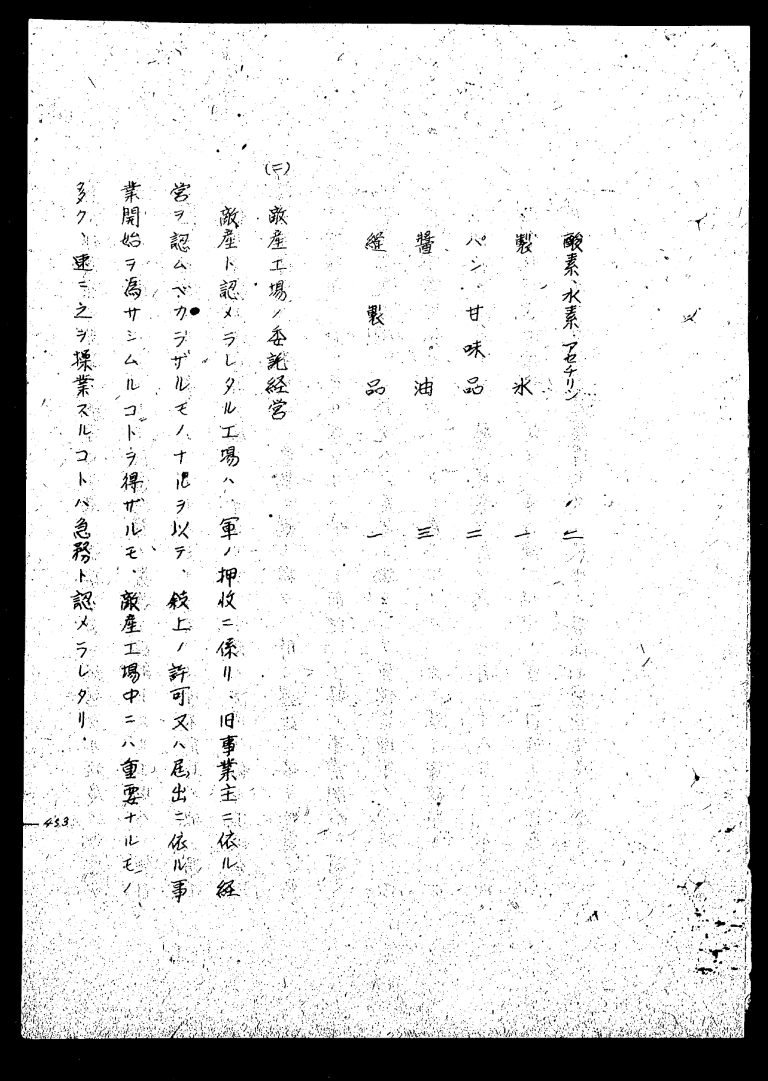 酸素、水素、アセチリン 二
製氷 一
パン、甘味品 二
醬油 三
縫製品 一
(二) 敵産工場ノ委託経営
敵産ト認メラレタル工場ハ、軍ノ押収ニ係リ、旧事業主ニ依ル経
営ヲ認ムベカラザルモノナルヲ以テ、叙上ノ許可又ハ届出ニ依ル事
業開始ヲ為サシムルコトヲ得ザルモ、敵産工場中ニハ重要ナルモノ
多ク、速ニ之ヲ操業スルコトハ急務ト認メラレタリ。
433